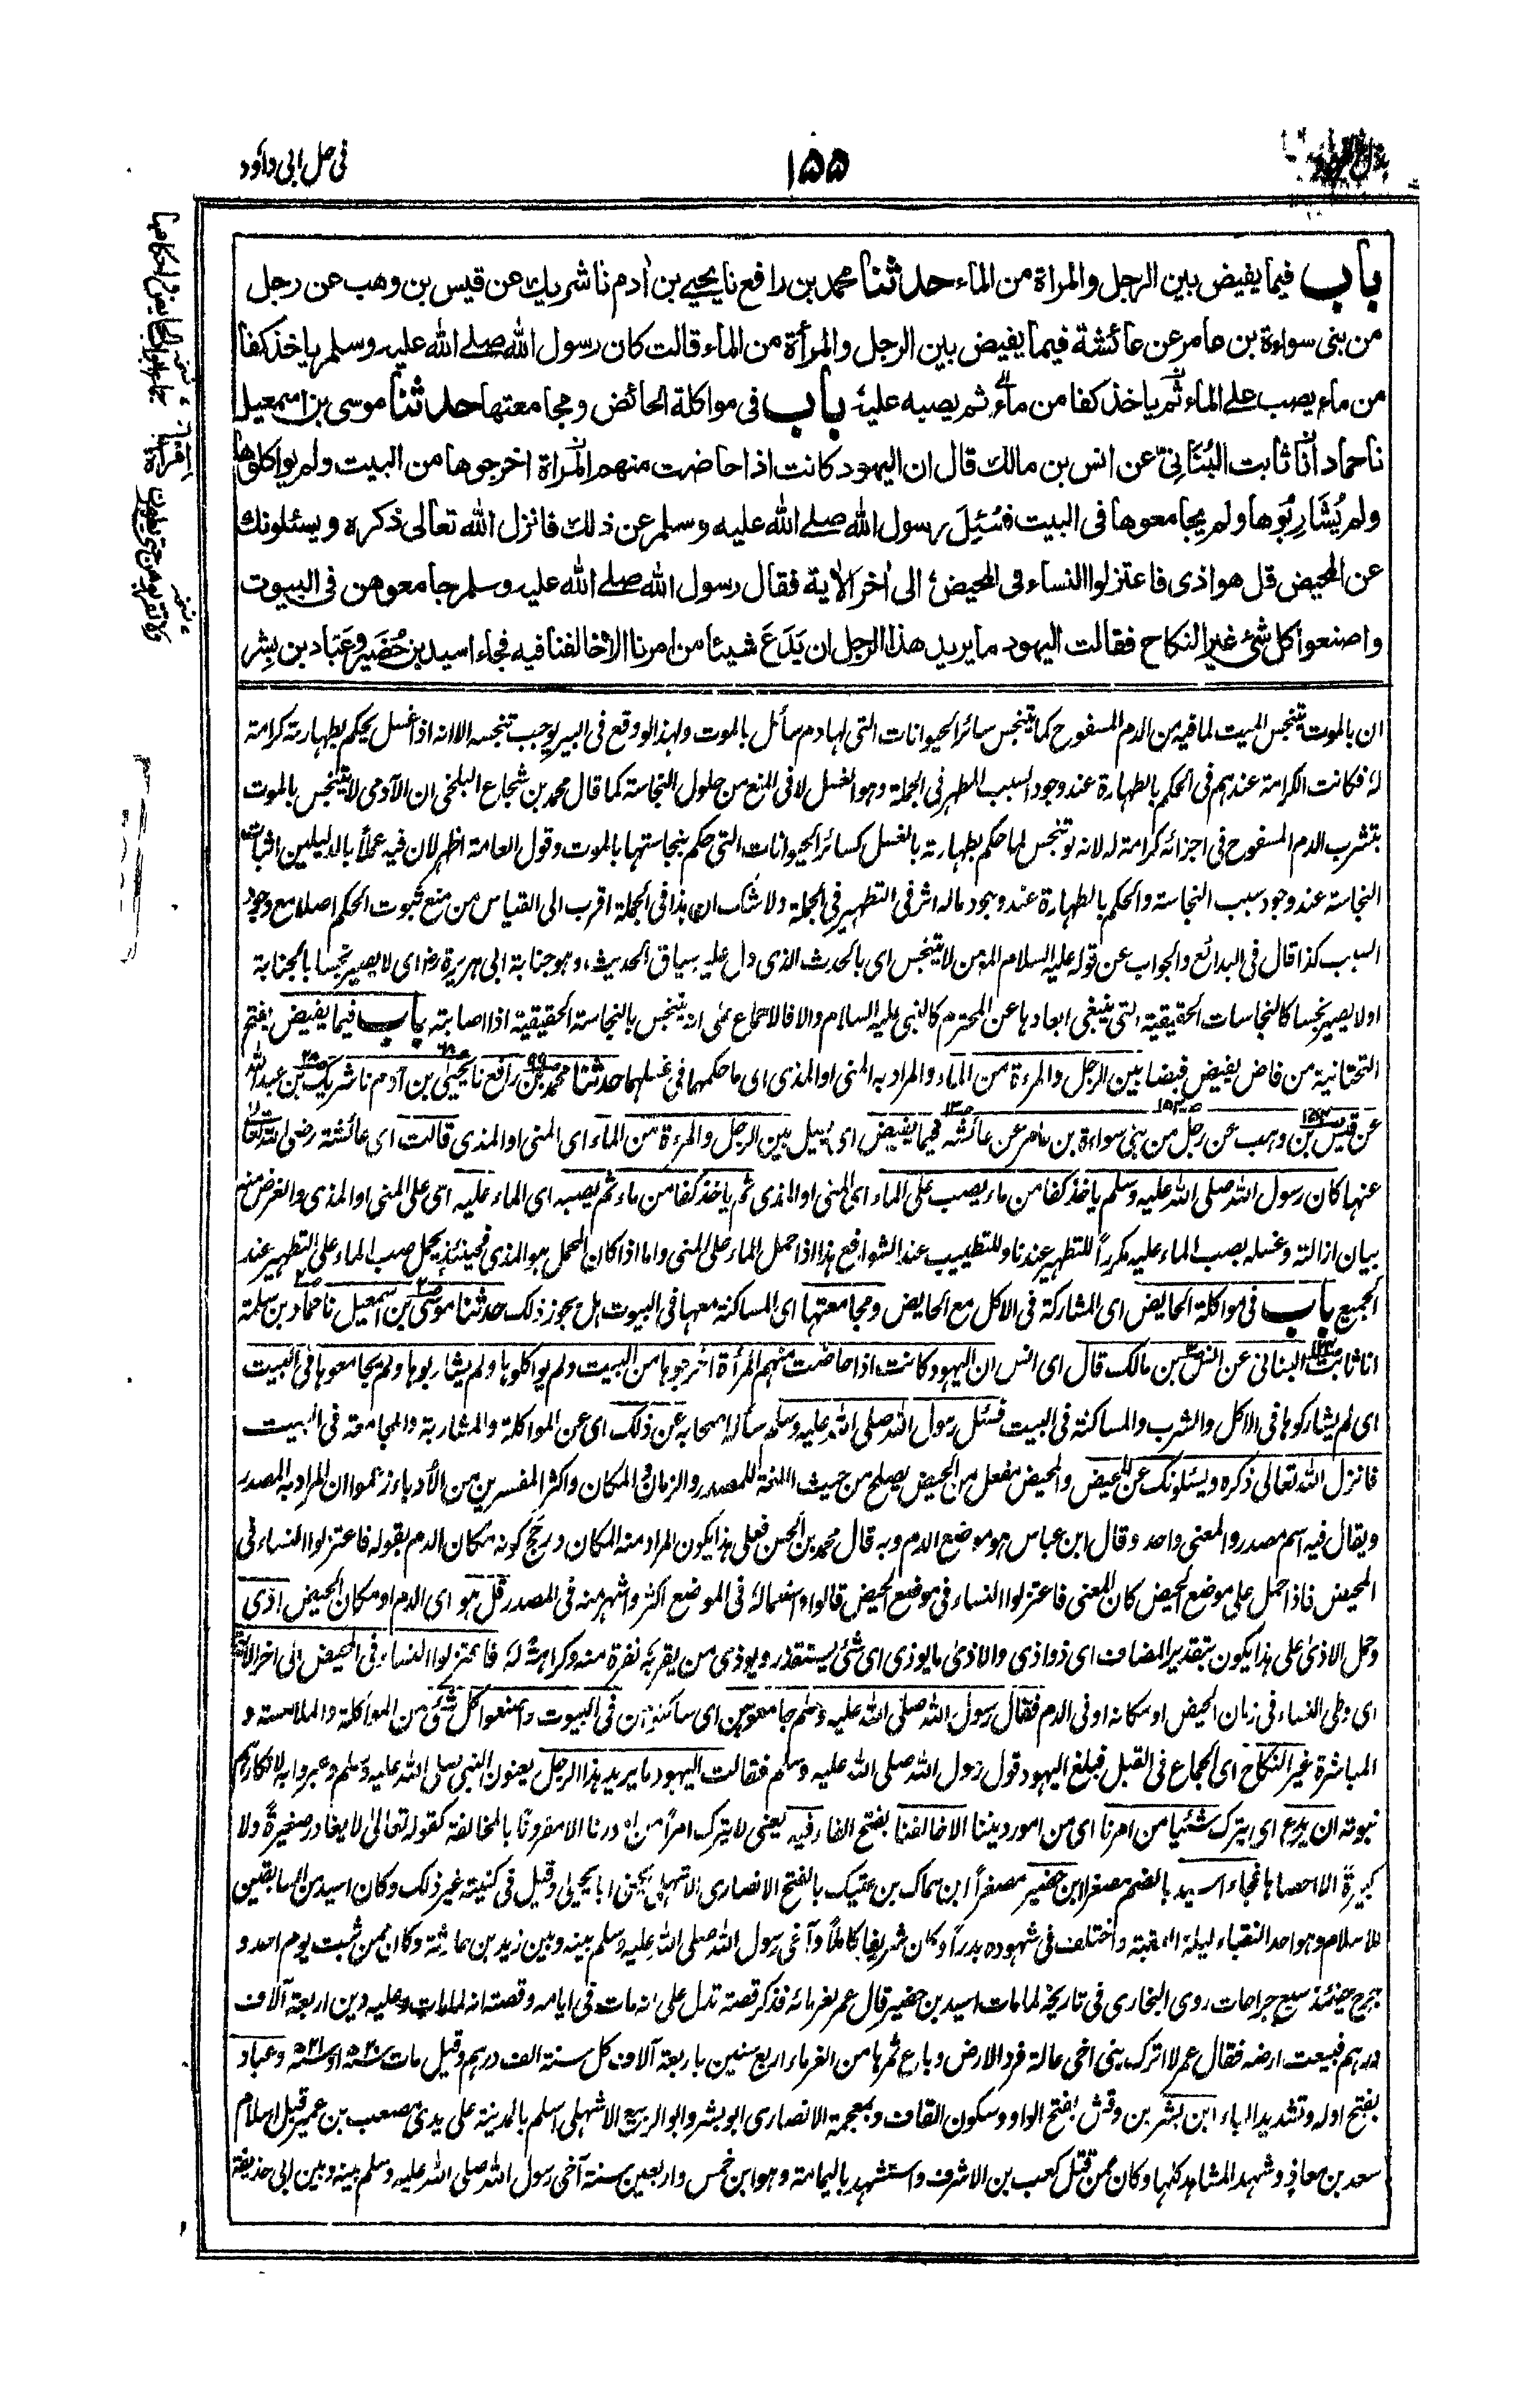 في حل ابی داؤد
١٥٥
باب فيما يفيض بين الرجل والمراة من الماء حدثنا محمد بن رافع نا يحيى بن أدم نا شريك عن قيس بن وهب عن رجل
من بنى سواءة بن عامر عن عائشة فيما يفيض بين الرجل والمرأة من الماء قالت كان رسول الله صلى الله عليه وسلم ياخذ كفا
من ماء يصب على الماء ثم ياخذ كفا من ماء ثم يصبه عليه باب فى مواكلة الحائض ومجامعتها حدثنا موسى بن اسمعيل
نا حماد انا ثابت البُنَانِيّ عن انس بن مالك قال ان اليهود كانت اذا حاضت منهم المراة اخرجوها من البيت ولم يواكلوها
ولم يُشَارِبُوها ولم يجامعوها فى البيت فسُئِلَ رسول الله صلى الله عليه وسلم عن ذلك فانزل الله تعالى ذكره ويسئلونك
عن المحيض قل هو اذى فاعتزلوا النساء فى المحيض الى أخر الأية فقال رسول الله صلى الله عليه وسلم جامعوهن فى البيوت
واصنعوا كل شئ غير النكاح فقالت اليهود ما يريد هذا الرجل ان يَدَعَ شيئا من امرنا الا خالفنا فيه فجاء اسيد بن حُضَير وعَبّاد بن بِشر
ان بالموت يتنجس الميت لما فيه من الدم المسفوح كما يتنجس سائر الحيوانات التى لها دم سائل بالموت ولهذا لو وقع فى البير يوجب تنجسه الا انه اذا غسل يحكم بطهارته كرامة
له فكانت الكرامة عندهم فى الحكم بالطهارة عند وجود السبب المطهر فى الجملة وهو الغسل لا فى المنع من حلول النجاسة كما قال محمد بن شجاع البلخى ان الآدمى لا يتنجس بالموت
بتشرب الدم المسفوح فى اجزائه كرامة له لانه لو تنجس لما حكم بطهارته بالغسل كسائر الحيوانات التى حكم بنجاستها بالموت وقول العامة اظهر لان فيه عملاً بالدليلين اثبات
النجاسة عند وجود سبب النجاسة والحكم بالطهارة عند وجود ماله اثر فى التطهير فى الجملة ولا شك ان هذا فى الجملة اقرب الى القياس من منع ثبوت الحكم اصلا مع وجود
السبب كذا قال فى البدائع والجواب عن قوله عليه السلام المؤمن لا يتنجس اى بالحدث الذى دل عليه سياق الحديث، وهو جنابة ابى هريرة رضى اى لا يصير نجسا بالجنابة
او لا يصير نجسا كالنجاسات الحقيقية التى ينبغى ابعادها عن المحترم كالنبى عليه السلام والا فالاجماع على انه يتنجس بالنجاسة الحقيقية اذا اصابته باب فيما يفيض بفتح
التحتانية من فاض يفيض فيضا بين الرجل والمرءة من الماء والمراد به المنى او المذى اى ما حكمهما فى غسلهما حدثنا محمد بن رافع نا يحيى بن آدم نا شريك بن عبد الله
عن قيس بن وهب عن رجل من بنى سواءة بن عامر عن عائشه فيما يفيض اى يسيل بين الرجل والمرءة من الماء اى المنى او المذى قالت اى عائشة رضى الله تعالى
عنها كان رسول الله صلى الله عليه وسلم ياخذ كفا من ماء يصب على الماء اى المنى او المذى ثم ياخذ كفا من ماء ثم يصبه اى الماء عليه اى على المنى او المذى والغرض منه
بيان ازالته وغسله بصب الماء عليه مكرراً للتطهير عندنا وللتطييب عند الشوافع هذا اذا حمل الماء على المنى واما اذا كان المحمل هو المذى فحينئذ يحمل صب الماء على التطهير عند
الجميع باب فى مواكلة الحايض اى المشاركة فى الاكل مع الحايض ومجامعتها اى المساكنة معها فى البيوت هل يجوز ذلك حدثنا موسى بن اسمعيل نا حماد بن سلمة
انا ثابت البنانى عن انس بن مالك قال اى انس ان اليهود كانت اذا حاضت منهم المرأة اخرجوها من البيت ولم يواكلوها ولم يشاربوها ولم يجامعوها فى البيت
اى لم يشاركوها فى الاكل والشرب والمساكنة فى البيت فسئل رسول الله صلى الله عليه وسلم سأله اصحابه عن ذلك اى عن المواكلة والمشاربة والمجامعة فى البيت
فانزل الله تعالى ذكره ويسئلونك عن المحيض والمحيض مفعل من الحيض يصلح من حيث اللغة للمصدر والزمان والمكان واكثر المفسرين من الأدباء زعموا ان المراد به المصدر
ويقال فيه اسم مصدر والمعنى واحد وقال ابن عباس هو موضع الدم وبه قال محمد بن الحسن فعلى هذا يكون المراد منه المكان ورجح كونه مكان الدم بقوله فاعتزلوا النساء فى
المحيض فاذا حمل على موضع الحيض كان المعنى فاعتزلوا النساء فى موضع الحيض قالوا واستعماله فى الموضع اكثر واشهر منه فى المصدر قل هو اى الدم او مكان الحيض اذى
وحمل الاذى على هذا يكون بتقدير المضاف اى ذو اذى والاذى ما يوذى اى شئ يستقذر ويوذى من يقربه نفرة منه وكراهة له فاعتزلوا النساء فى المحيض الى اخر الآية
اى وطى النساء فى زمان الحيض او مكانه او فى الدم فقال رسول الله صلى الله عليه وسلم جامعوهن اى ساكنوهن فى البيوت واصنعوا كل شئ من المواكلة والملامسة و
المباشرة غير النكاح اى الجماع فى القبل فبلغ اليهود قول رسول الله صلى الله عليه وسلم فقالت اليهود ما يريد هذا الرجل يعنون النبى صلى الله عليه وسلم وعبروا به لانكارهم
نبوته ان يدع اى يترك شئيا من امرنا اى من امور ديننا الا خالفنا بفتح الفاء فيه يعنى لا يترك امراً من امورنا الا مقرونا بالمخالفة كقوله تعالى لا يغادر صغيرة ولا
كبيرة الا احصاها فجاء اسيد بالضم مصغرا بن حضير مصغراً ابن سماك بن عتيك بالفتح الانصارى الاشهلى يكنى ابا يحيى وقيل فى كنيته غير ذلك وكان اسيد من السابقين
للاسلام وهو احد النقباء ليلة العقبة واختلف فى شهوده بدراً وكان شريفا كاملاً وآخى رسول الله صلى الله عليه وسلم بينه وبين زيد بن حارثة وكان ممن ثبت يوم احد و
جرح حينئذ سبع جراحات روى البخارى فى تاريخه لما مات اسيد بن حضير قال عمر لغرمائه فذكر قصة تدل على انه مات فى ايامه وقصته انه لما مات وعليه دين اربعة آلاف
درهم فبيعت ارضه فقال عمر لا اترك بنى اخى عالة فرد الارض وباع ثمرها من الغرماء اربع سنين باربعة آلاف كل سنة الف درهم وقيل مات سنة ٢٠ او سنة ٢١ وعباد
بفتح اوله وتشديد الباء ابن بشر بن وقش بفتح الواو وسكون القاف وبمعجمة الانصارى ابو بشر وابو الربيع الاشهلى اسلم بالمدينة على يدى مصعب بن عمير قبل اسلام
سعد بن معاذ وشهد المشاهد كلها وكان ممن قتل كعب بن الاشرف واستشهد باليمامة وهو ابن خمس واربعين سنة آخى رسول الله صلى الله عليه وسلم بينه وبين ابى حذيفة